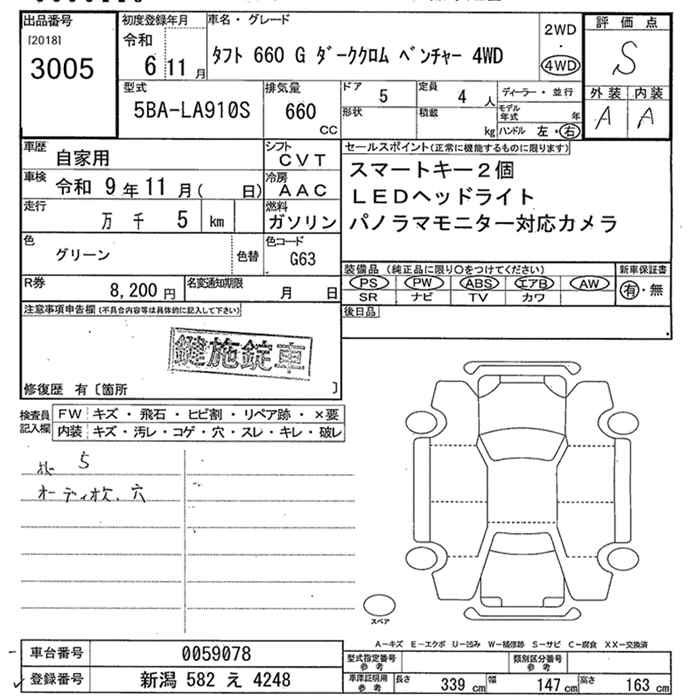 出品番号
[2018]
3005
初度登録年月
令和
6 11月
車名・グレード
タフト 660 G ダーククロム ベンチャー 4WD
2WD
・
4WD
評価点
S
外装 内装
A A
型式
5BA-LA910S
排気量
660
cc
ドア
5
定員
4 人
形状
積載
kg
ディーラー・並行
モデル年式 年
ハンドル 左・右
車歴
自家用
シフト
CVT
車検
令和 9年11月( 日)
冷房
AAC
走行
万 千 5 km
燃料
ガソリン
色
グリーン
色替
色コード
G63
R券
8,200円
名変通知期限
月 日
セールスポイント(正常に機能するものに限ります)
スマートキー2個
LEDヘッドライト
パノラマモニター対応カメラ
装備品 (純正品に限り○をつけてください)
PS PW ABS エアB AW
SR ナビ TV カワ
新車保証書
有・無
後日品
注意事項申告欄(不具合内容等は具体的に記入して下さい)
鍵施錠車
修復歴 有〔箇所 〕
検査員
記入欄
FW キズ・飛石・ヒビ割・リペア跡・×要
内装 キズ・汚レ・コゲ・穴・スレ・キレ・破レ
5
オーディオ穴
スペア
A−キズ E−エクボ U−凹み W−補修跡 S−サビ C−腐食 XX−交換済
車台番号
0059078
登録番号
新潟 582 え 4248
型式指定番号
参考
類別区分番号
参考
車庫証明用
参考
長さ
339 cm
幅
147 cm
高さ
163 cm